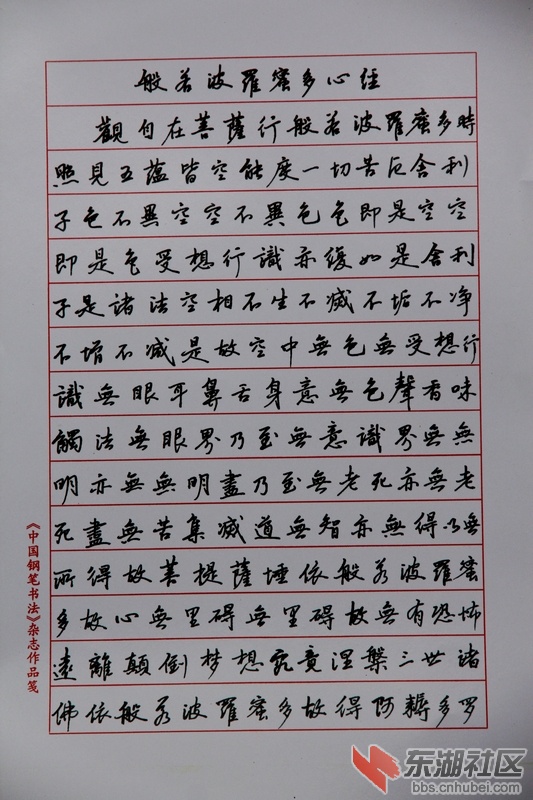 般若波羅蜜多心經
觀自在菩薩行般若波羅蜜多時
照見五蘊皆空能度一切苦厄舍利
子色不異空空不異色色即是空空
即是色受想行識亦復如是舍利
子是諸法空相不生不滅不垢不净
不增不减是故空中無色無受想行
識無眼耳鼻舌身意無色聲香味
觸法無眼界乃至無意識界無無
明亦無無明盡乃至無老死亦無老
死盡無苦集滅道無智亦無得以無
所得故菩提薩埵依般若波羅蜜
多故心無罣碍無罣碍故無有恐怖
遠離顛倒梦想究竟涅槃三世諸
佛依般若波羅蜜多故得阿耨多罗
《中国钢笔书法》杂志作品笺
东湖社区
bbs.cnhubei.com